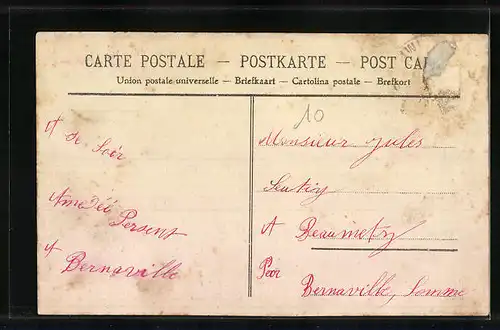 CARTE POSTALE — POSTKARTE — POST CA
Union postale universelle — Briefkaart — Cartolina postale — Brefkort
10
A
de Soér
Amedéé Persent
A
Bernaville
Monsieur Jules
A Beaumetz
Par
Bernaville, Somme